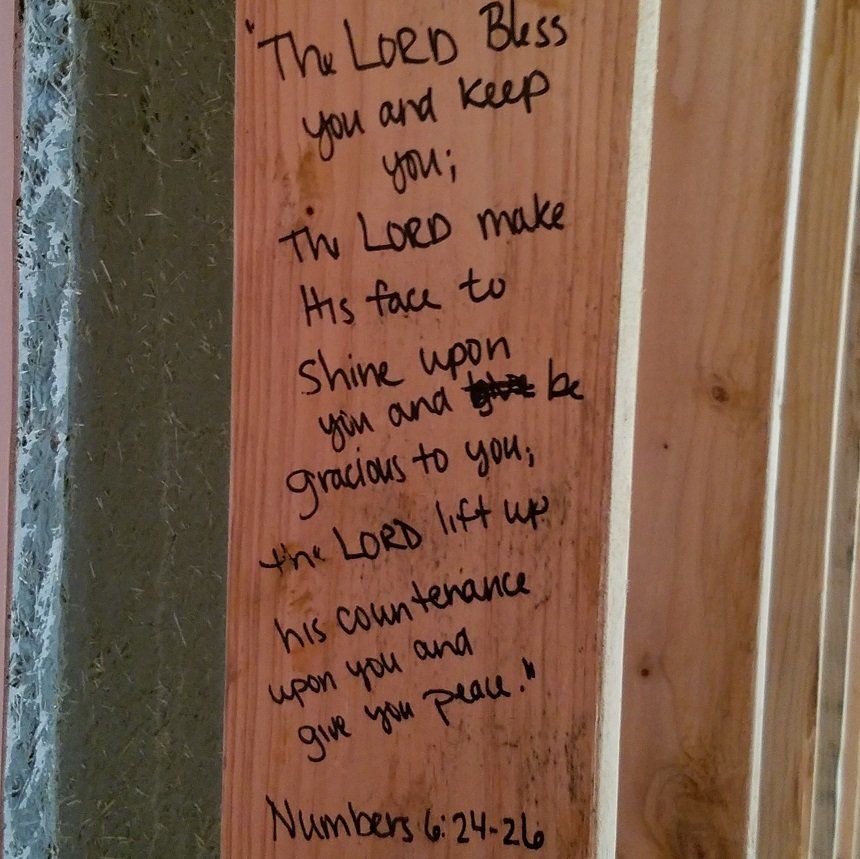 "The LORD Bless
you and keep
you;
The LORD make
His face to
shine upon
you and be
gracious to you;
the LORD lift up
his countenance
upon you and
give you peace."
Numbers 6:24-26